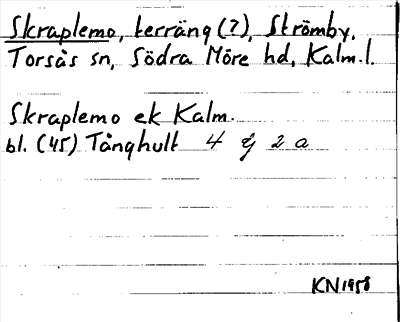 Skraplemo, terräng (?), Strömby,
Torsås sn, Södra Möre hd, Kalm. l.
Skraplemo ek Kalm.
bl. (45) Tånghult 4 g 2 a
KN 1958